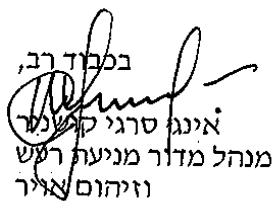 בכבוד רב,
אינג' סרגי
מנהל מדור מניעת רעש
וזיהום אויר